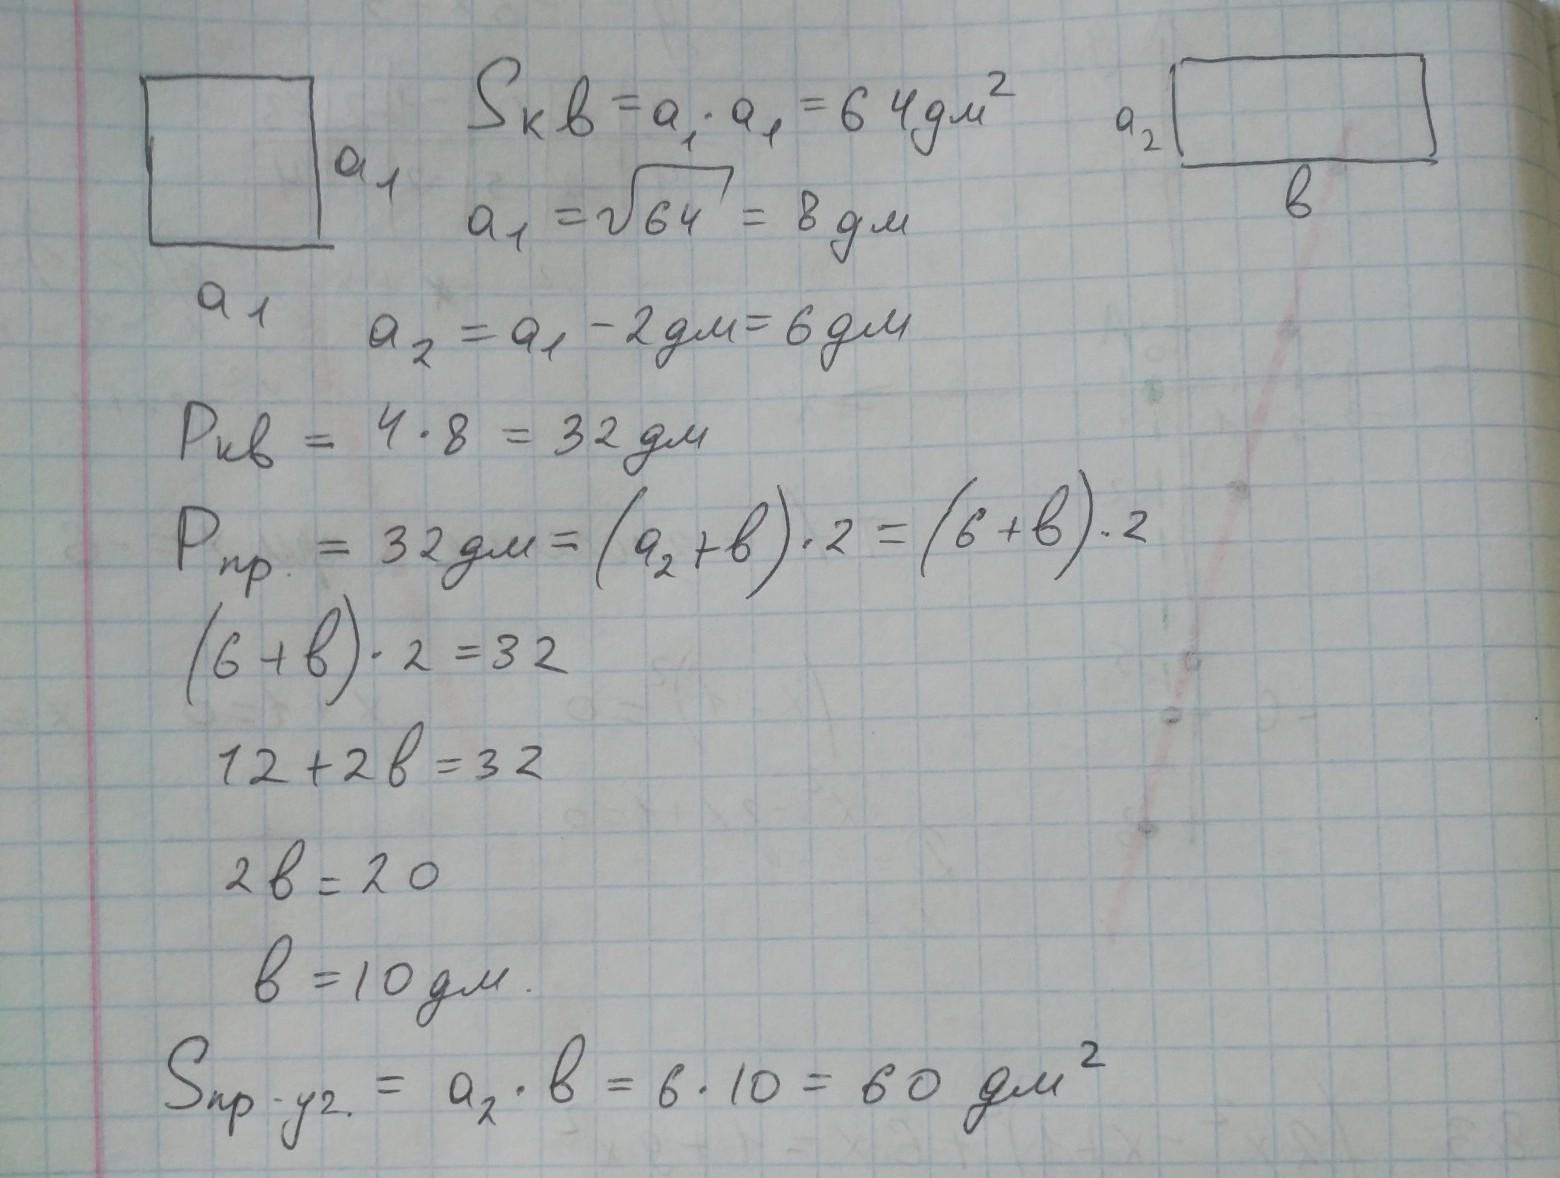 Sкв = a₁ · a₁ = 64 дм²
a₂
a₁
a₁ = √64 = 8 дм
в
a₁
a₂ = a₁ - 2 дм = 6 дм
Pкв = 4 · 8 = 32 дм
Pпр. = 32 дм = (a₂ + в) · 2 = (6 + в) · 2
(6 + в) · 2 = 32
12 + 2в = 32
2в = 20
в = 10 дм.
Sпр-уг. = a₂ · в = 6 · 10 = 60 дм²